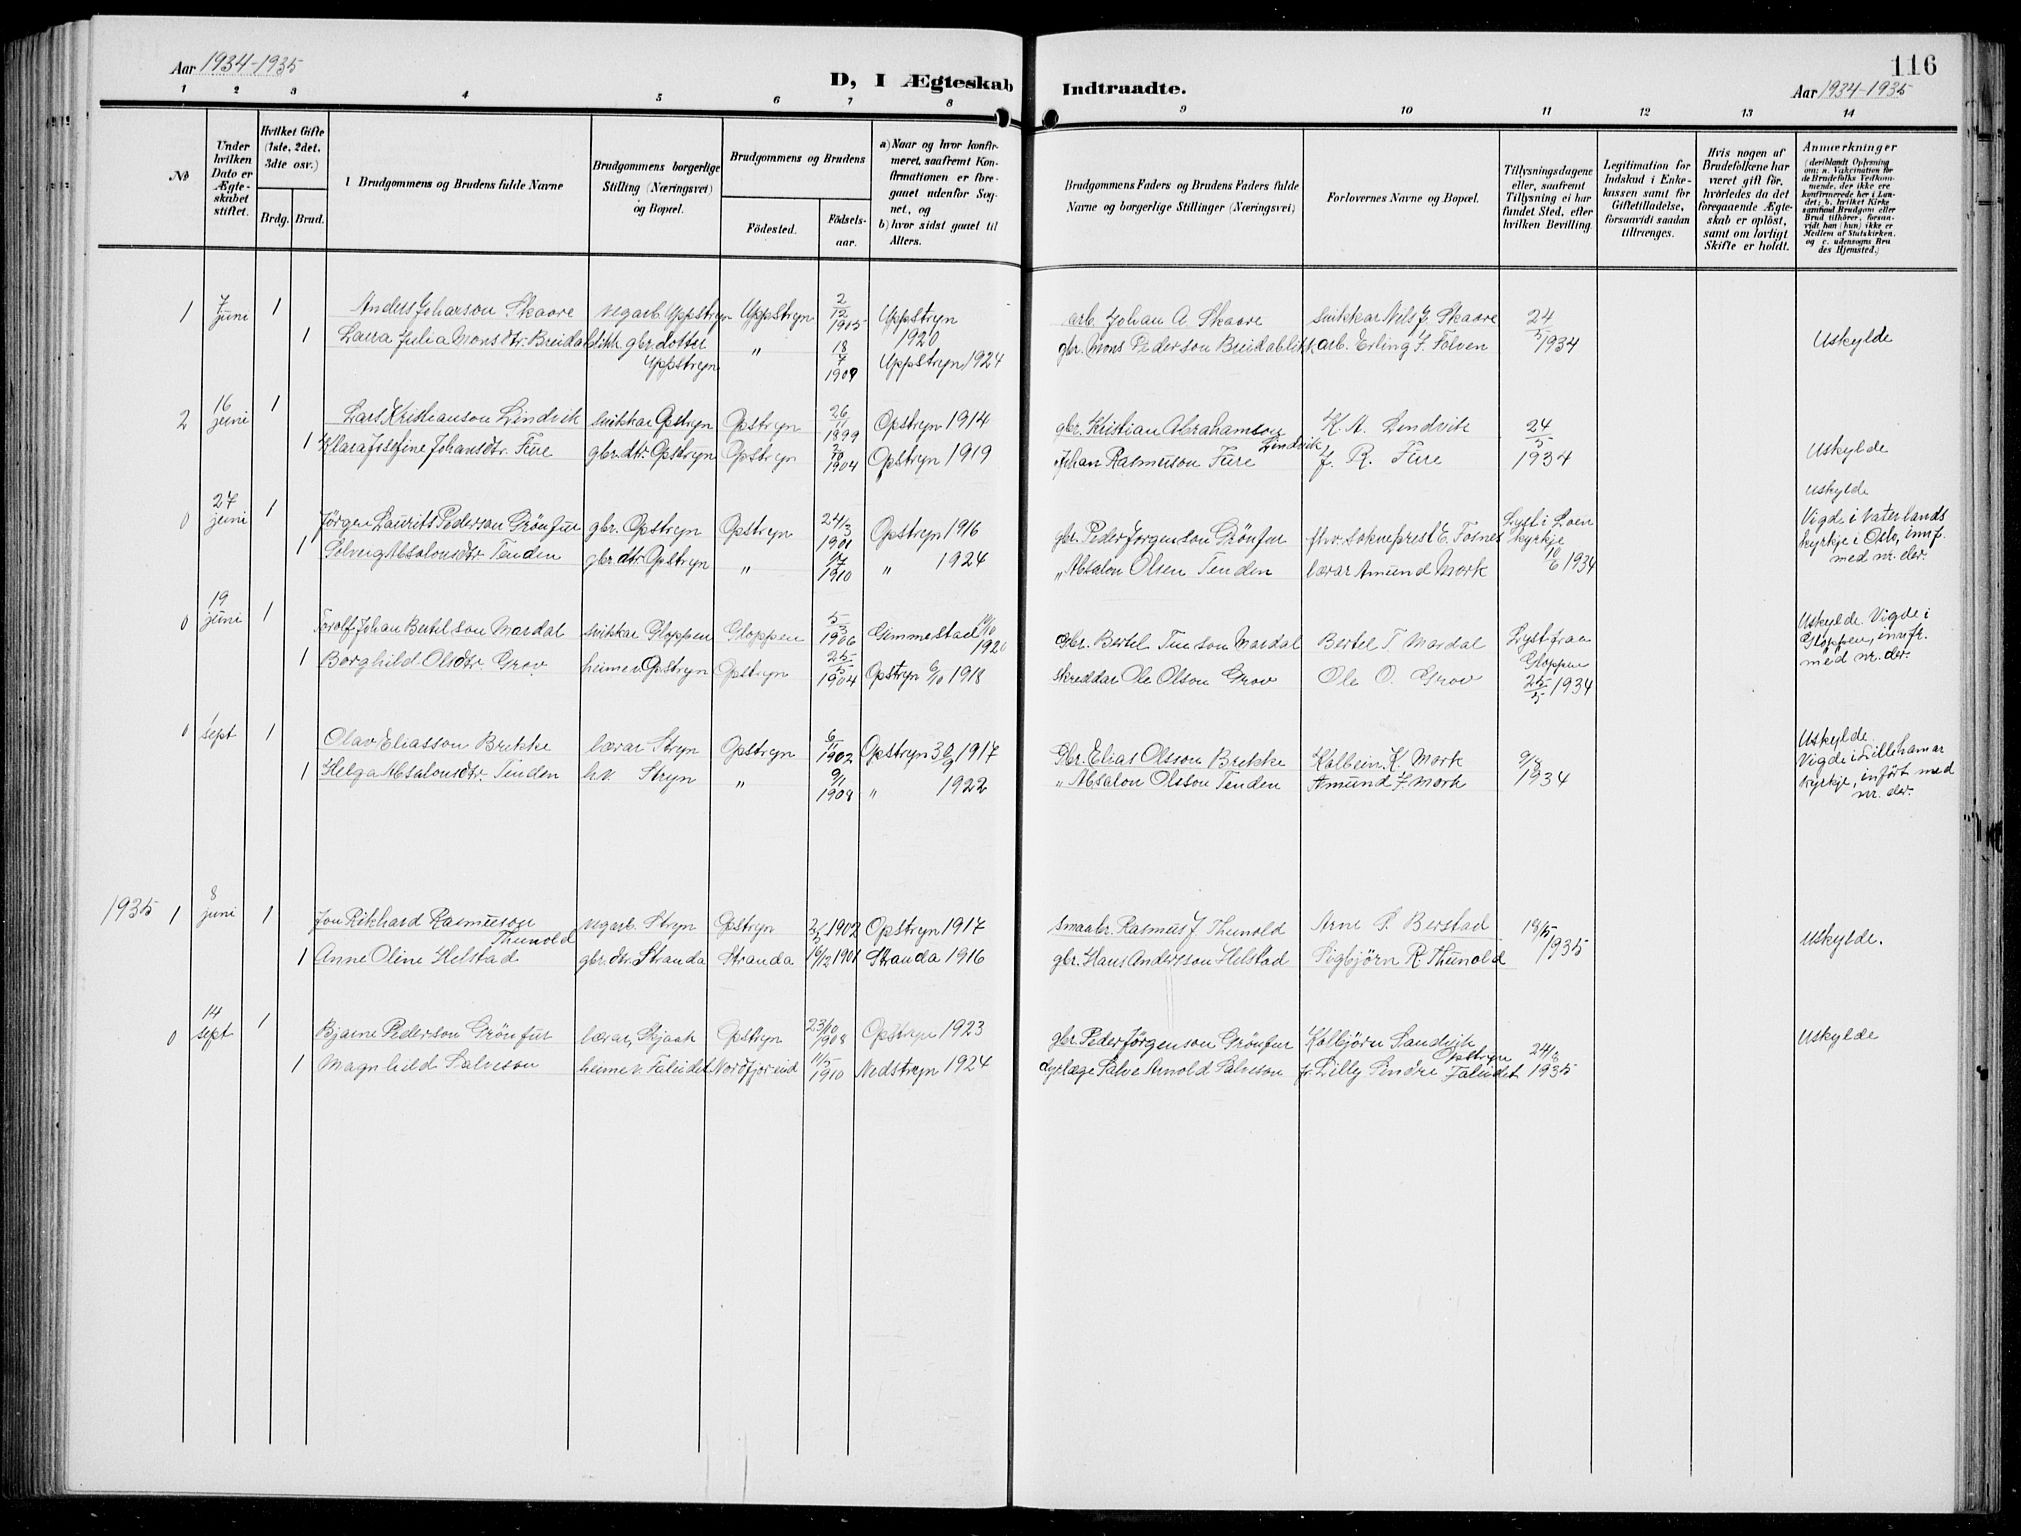 Aar 1934-1935
D, I Ægteskab
Indtraadte.
116
Aar 1934-1935
1 2 3 4 5 6 7 8 9 10 11 12 13 14
No
Under hvilken Dato er Ægteskabet stiftet.
Hvilket Gifte (1ste, 2det, 3die osv.)
Brdg. Brud.
1 Brudgommens og Brudens fulde Navne
Brudgommens borgerlige Stilling (Næringsvei) og Bopæl.
Brudgommens og Brudens
Fødested.
Fødselsaar.
a) Naar og hvor konfirmeret, saafremt Konfirmationen er foregaaet udenfor Sognet, og
b) hvor sidst gaaet til Alters.
Brudgommens Faders og Brudens Faders fulde Navne og borgerlige Stillinger (Næringsvei)
Forlovernes Navne og Bopæl.
Tillysningsdagene eller, saafremt Tillysning ei har fundet Sted, efter hvilken Bevilling.
Legitimation for Indskud i Enkekassen samt for Giftetilladelse, forsaavidt saadan tiltrænges.
Hvis nogen af Brudefolkene har været gift før, hvorledes da det foregaaende Ægteskab er opløst, samt om lovligt Skifte er holdt.
Anmærkninger
(deriblandt Oplysning om: a. Vakcination for de Brudefolks Vedkommende, der ikke ere konfirmerede her i Landet; b. hvilket Kirkesamfund Brudgom eller Brud tilhører, forsaavidt han (hun) ikke er Medlem af Statskirken, og c. udensogns Brudes Hjemsted.)
1 7 juni 1 Anders Johanson Skaare vegarb. Uppstryn Uppstryn 2/12 1905 Uppstryn 1920 arb. Johan A Skaare snikkar Nels J. Skaare 24/5 1934 Uskylde
1 Laura Julia Monsdtr. Breidablikk gbr dotter Uppstryn " 18/7 1909 Uppstryn 1924 gbr. Mons Pederson Breidablikk arb. Erling J. Folven
2 16 juni 1 Lars Kristianson Lindvik snikkar Opstryn Opstryn 26/11 1899 Opstryn 1914 gbr. Kristian Abrahamson Lindvik K. A. Lindvik 24/5 1934 Uskylde
1 Klara Josefine Johansdtr. Fure gbr. dtr. Opstryn Opstryn 1904 Opstryn 1919 Johan Rasmuson Fure J. R. Fure
0 27 juni 1 Jørgen Laurits Pederson Grönfur gbr. Opstryn Opstryn 24/3 1901 Opstryn 1916 gbr. Peder Jørgenson Grönfur fhv. sokneprest E. Tosnes Lyst i Loen kyrkje 10/6 1934 Uskylde Vigde i Vaterlands kyrkje i Oslo, innf. med nr. der.
1 Solveig Absalonsdtr. Tenden gbr dtr. Opstryn " 1910 " 1924 " Absalon Olsen Tenden lærar Amund Mork
0 19 juni 1 Torolf Johan Bertelson Mardal snikkar Gloppen Gloppen 5/3 1906 Gimmestad 1920 Gbr. Bertel Tueson Mardal Bertel T. Mardal Lyst fraa Gloppen 25/5 1934 Uskylde. Vigde i Gloppen, innfr. med nr. der.
1 Borghild Olsdtr. Grov heimev. Opstryn Opstryn 25/5 1904 Opstryn 6/10 1918 Skreddar Ole Olson Grov Ole O. Grov
0 1 sept 1 Olav Eliasson Brekke lærar Stryn Opstryn 6/11 1902 Opstryn 30/9 1917 Gbr. Elias Olsson Brekke Kolbein K. Mork 9/8 1934 Uskylde. Vigde i Lillehamar kyrkje, infört med nr. der.
1 Helga Absalonsdtr. Tenden h.v. Stryn " 9/1 1908 " 1922 " Absalon Olsson Tenden Amund J. Mork
1935 1 8 juni 1 Jon Rikhard Rasmuson Thunold vegarb. Stryn Opstryn 2/5 1902 Opstryn 1917 Smaabr. Rasmus J. Thunold Arne P. Berstad 18/5 1935 Uskylde.
1 Anne Oline Helstad gbr. dtr. Stranda Stranda 16/12 1901 Stranda 1916 gbr. Hans Andersson Helstad Sigbjörn R. Thunold
0 14 sept 1 Bjarne Pederson Grönfur lærar, Skjaak Opstryn 23/10 1908 Opstryn 1923 gbr. Peder Jørgenson Grönfur Kolbjörn Sandvik Opstryn 24/8 1935 Uskylde
1 Magnhild Salveson heimev. Faleidet Nordfjoreid 11/5 1910 Nedstryn 1924 dyrlæge Salve Arnold Salveson fr. Lilly Sindre Faleidet